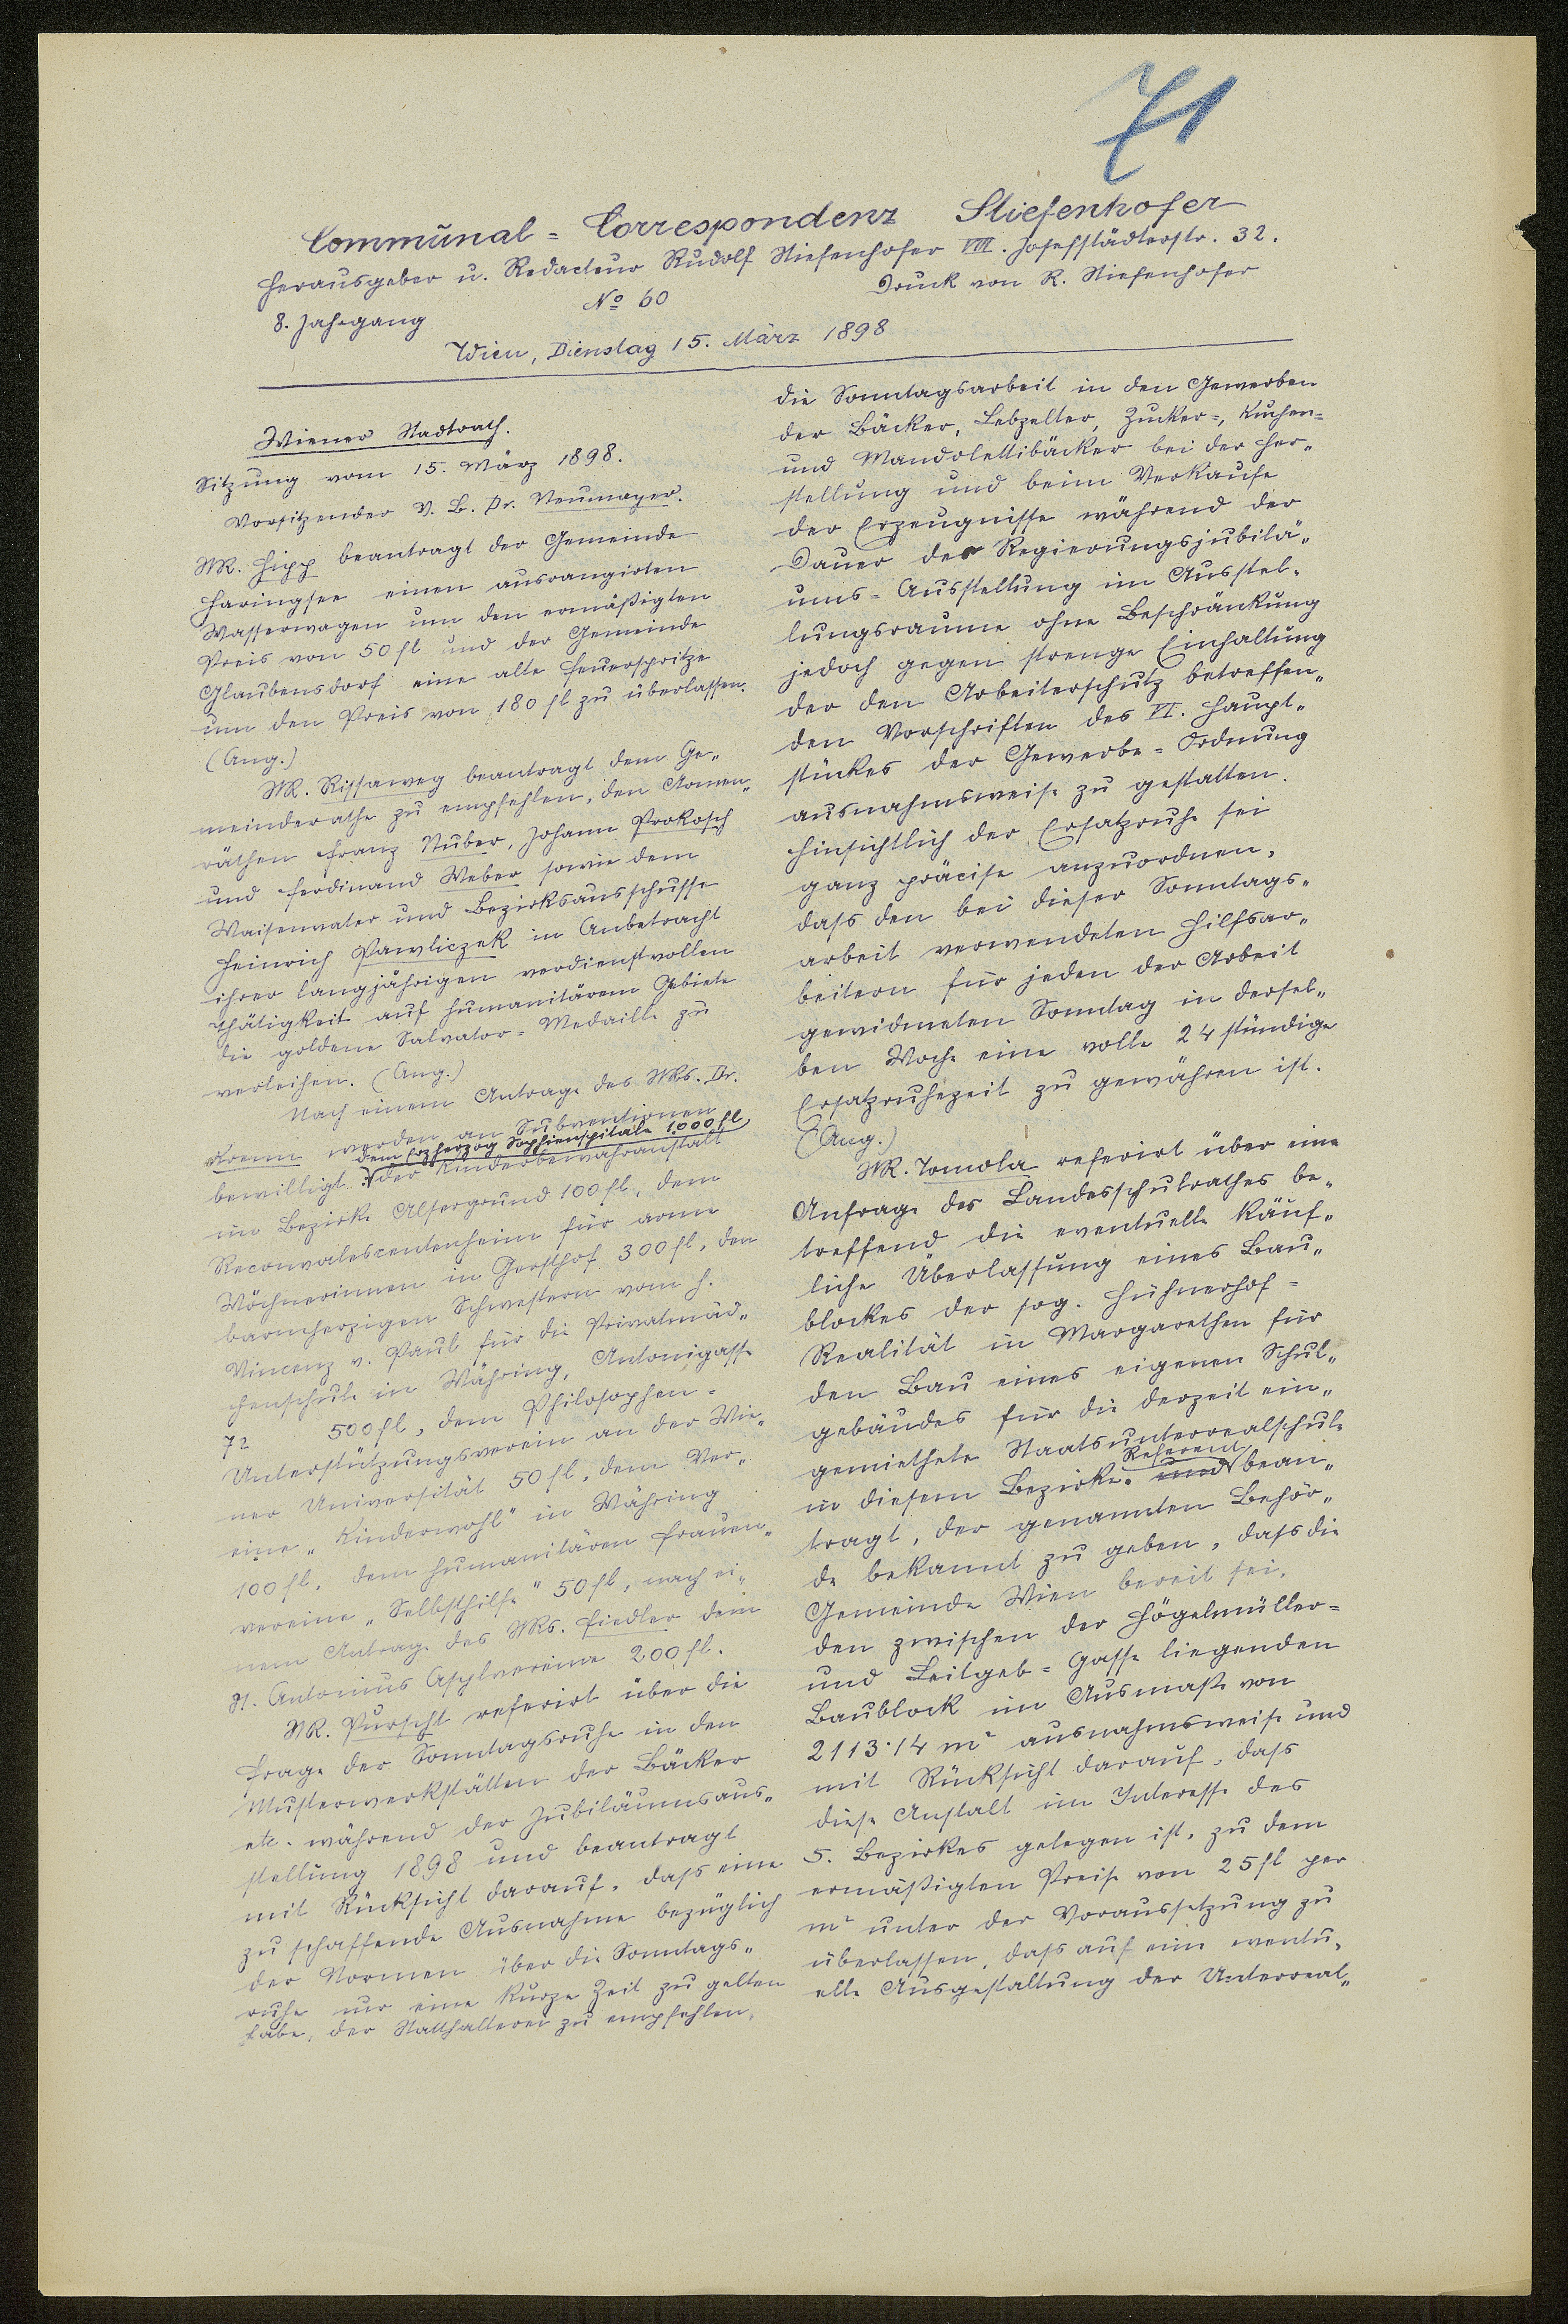 71
Communal-Correspondenz Stiefenhofer
Herausgeber u. Redacteur Rudolf Stiefenhofer VIII. Josefstädterstr. 32.
8. Jahrgang No 60 Druck von R. Stiefenhofer
Wien, Dienstag 15. März 1898
Wiener Stadtrath.
Sitzung vom 15. März 1898.
Vorsitzender V. B. Dr. Neumayer.
StR. Hipp beantragt der Gemeinde
Haringsee einen ausrangirten
Wasserwagen um den ermäßigten
Preis von 50 fl und der Gemeinde
Glaubensdorf eine alte Feuerspritze
um den Preis von 180 fl zu überlassen.
(Ang.)
StR. Rissaweg beantragt dem Ge„
meinderathe zu empfehlen, den Armen„
räthen Franz Nuber, Johann Prokosch
und Ferdinand Weber sowie dem
Waisenvater und Bezirksausschusse
Heinrich Pawliczek in Anbetracht
ihrer langjährigen verdienstvollen
Thätigkeit auf humanitärem Gebiete
die goldene Salvator=Medaille zu
verleihen. (Ang.)
Nach einem Antrage des StRs. Dr.
Krenn werden an Subventionen
dem Erzherzog Sophienspitale 1000 fl,
bewilligt: der Kinderbewahranstalt
im Bezirke Alsergrund 100 fl, dem
Reconvalescentenheim für arme
Wöchnerinnen in Gersthof 300 fl, den
barmherzigen Schwestern vom h.
Vincenz v. Paul für die Privatmäd„
chenschule in Währing, Antonigasse
72 500 fl, dem Philosophen=
Unterstützungsverein an der Wie„
ner Universität 50 fl, dem Ver„
eine „Kinderwohl" in Währing
100 fl, dem humanitären Frauen„
vereine „Selbsthilfe" 50 fl, nach ei„
nem Antrage des StRs. Fiedler dem
St. Antonius Asylvereine 200 fl.
StR. Purscht referirt über die
Frage der Sonntagsruhe in den
Musterwerkstätten der Bäcker
etc. während der Jubiläumsaus„
stellung 1898 und beantragt
mit Rücksicht darauf, dass eine
zu schaffende Ausnahme bezüglich
der Normen über die Sonntags„
ruhe nur eine kurze Zeit zu gelten
habe, der Statthalterei zu empfehlen,
die Sonntagsarbeit in den Gewerben
der Bäcker, Lebzelter, Zucker=, Kuchen=
und Mandolettibäcker bei der Her„
stellung und beim Verkaufe
der Erzeugnisse während der
Dauer der Regierungsjubilä„
ums=Ausstellung im Ausstel„
lungsraume ohne Beschränkung
jedoch gegen strenge Einhaltung
der den Arbeiterschutz betreffen„
den Vorschriften des VI. Haupt„
stückes der Gewerbe=Ordnung
ausnahmsweise zu gestatten.
Hinsichtlich der Ersatzruhe sei
ganz präcise anzuordnen,
dass den bei dieser Sonntags„
arbeit verwendeten Hilfsar„
beitern für jeden der Arbeit
gewidmeten Sonntag in dersel„
ben Woche eine volle 24 stündige
Ersatzruhezeit zu gewähren ist.
(Ang.)
StR. Tomola referirt über eine
Anfrage des Landesschulrathes be„
treffend die eventuelle käuf„
liche Überlassung eines Bau„
blockes der sog. Hühnerhof=
Realität in Margarethen für
den Bau eines eigenen Schul„
gebäudes für die derzeit ein„
gemiethete Staatsunterrealschule
Referent
in diesem Bezirke. und bean„
tragt, der genannten Behör„
de bekannt zu geben, dass die
Gemeinde Wien bereit sei,
den zwischen der Högelmüller=
und Leitgeb=Gasse liegenden
Baublock im Ausmaße von
2113·14 m² ausnahmsweise und
mit Rücksicht darauf, dass
diese Anstalt im Interesse des
5. Bezirkes gelegen ist, zu dem
ermäßigten Preise von 25 fl per
m² unter der Voraussetzung zu
überlassen, dass auf eine eventu„
elle Ausgestaltung der Unterreal„